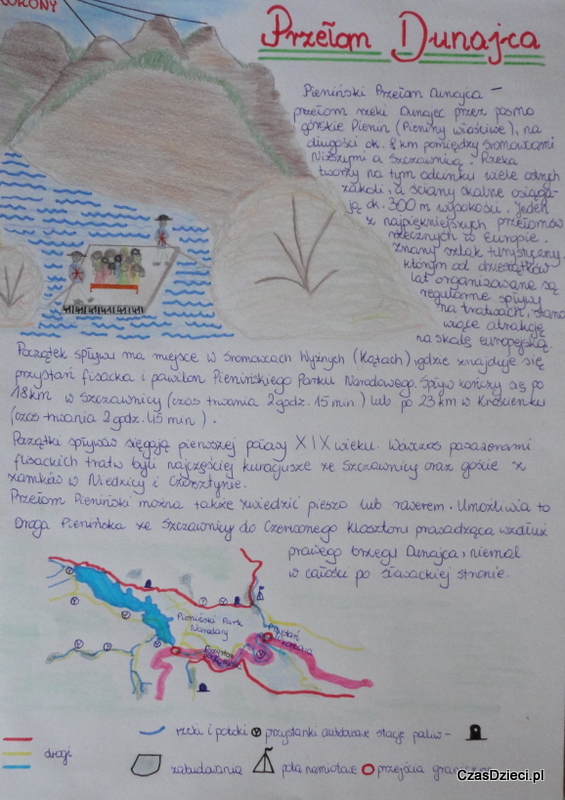 KORONY
Przełom Dunajca
Pieniński Przełom Dunajca –
przełom rzeki Dunajec przez pasmo
górskie Pienin (Pieniny właściwe), na
długości ok. 8 km pomiędzy Sromowcami
Niższymi a Szczawnicą. Rzeka
tworzy na tym odcinku wiele ostrych
zakoli, a ściany skalne osiąga-
ją ok. 300 m wysokości. Jeden
z najpiękniejszych przełomów
rzecznych w Europie.
Znany szlak turystyczny,
którym od dziesiątków
lat organizowane są
regularne spływy
na tratwach, stano
wiące atrakcję
na skalę europejską.
Początek spływu ma miejsce w Sromowcach Wyżnych (Kątach), gdzie znajduje się
przystań flisacka i pawilon Pienińskiego Parku Narodowego. Spływ kończy się po
18 km w Szczawnicy (czas trwania 2 godz. 15 min) lub po 23 km w Krościenku
(czas trwania 2 godz. 45 min).
Początki spływów sięgają pierwszej połowy XIX wieku. Wówczas pasażerami
flisackich tratw byli najczęściej kuracjusze ze Szczawnicy oraz goście z
zamków w Niedzicy i Czorsztynie.
Przełom Pieniński można także zwiedzić pieszo lub rowerem. Umożliwia to
Droga Pienińska ze Szczawnicy do Czerwonego Klasztoru prowadząca wzdłuż
prawego brzegu Dunajca, niemal
w całości po słowackiej stronie.
Pieniński Park
Narodowy
Przystań
końcowa
Przystań
drogi
rzeki i potoki przystanki autobusowe stacje paliw –
zabudowania pola namiotowe przejścia graniczne
CzasDzieci.pl